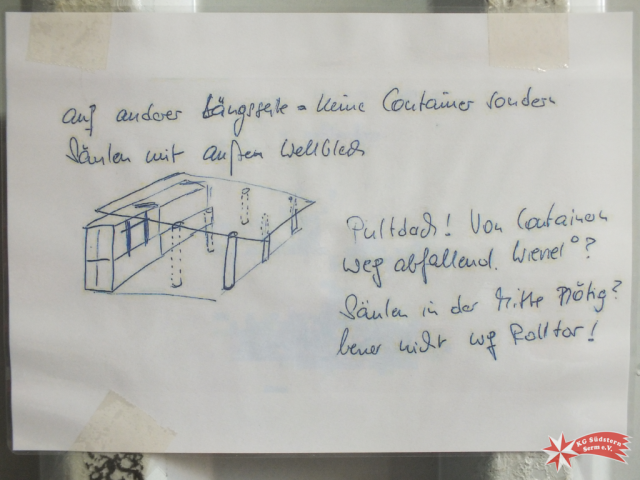 auf anderer Längsseite = keine Container sondern
Säulen mit außen Wellblech
Pultdach! Von Containern
weg abfallend. Wieviel °?
Säulen in der Mitte Nötig?
besser nicht wg Rolltor!
KG Südstern
Serm e.V.